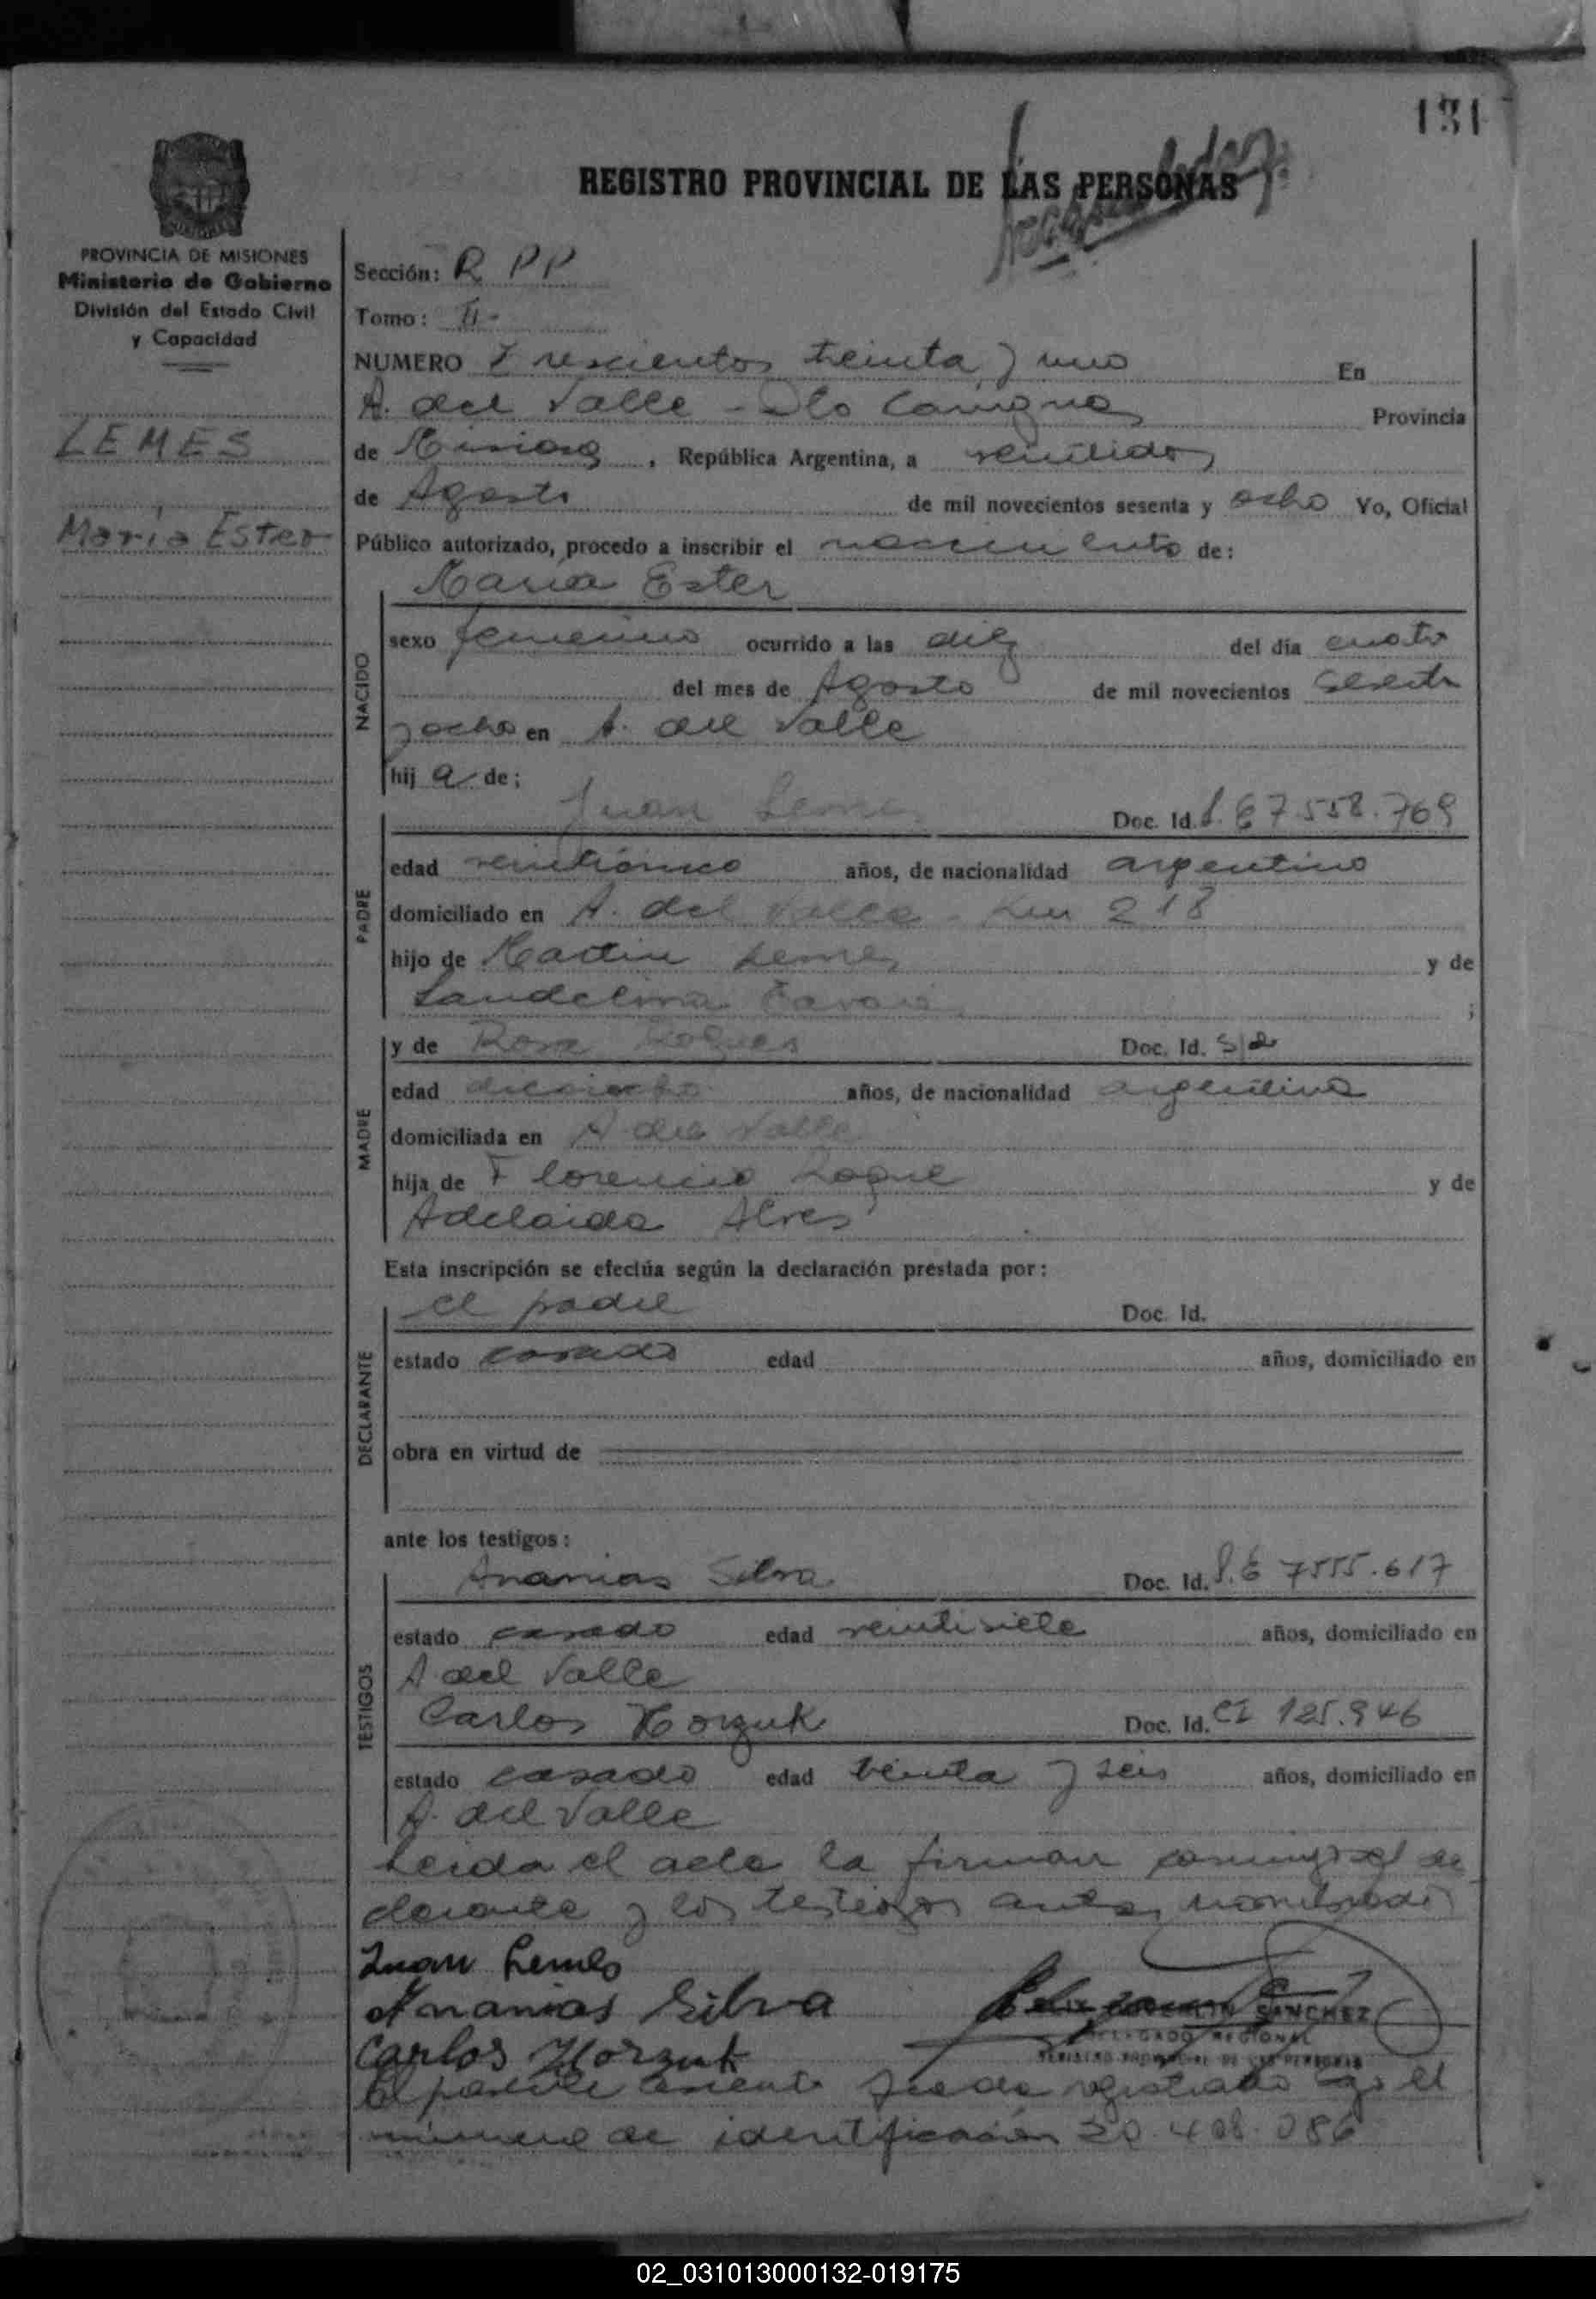 131
REGISTRO PROVINCIAL DE LAS PERSONAS
PROVINCIA DE MISIONES
Ministerio de Gobierno
División del Estado Civil
y Capacidad
LEMES
María Ester
Sección: R PP
Tomo: II-
NUMERO Trescientos treinta y uno En
A. del Valle - Dto Cainguas Provincia
de Misiones, República Argentina, a veintidos
de Agosto de mil novecientos sesenta y ocho Yo, Oficial
Público autorizado, procedo a inscribir el nacimiento de:
NACIDO
María Ester
sexo femenino ocurrido a las diez del día cuatro
del mes de Agosto de mil novecientos sesenta
y ocho en A. del Valle
hij a de:
PADRE
Juan Lemes Doc. Id. 7.558.769
edad veinticinco años, de nacionalidad argentino
domiciliado en A. del Valle - Km 218
hijo de Martin Lemes y de
Landelina ;
MADRE
y de Rosa Doc. Id. S/d
edad dieciocho años, de nacionalidad argentina
domiciliada en A del Valle
hija de Florencio Roque y de
Adelaida Alves
Esta inscripción se efectúa según la declaración prestada por:
DECLARANTE
el padre Doc. Id.
estado casado edad años, domiciliado en
obra en virtud de
ante los testigos:
TESTIGOS
Ananias Silva Doc. Id. L.E 7555.617
estado casado edad veintisiete años, domiciliado en
A del Valle
Carlos Horzuk Doc. Id. CI 125.946
estado casado edad treinta y seis años, domiciliado en
A. del Valle
Leida el acta la firman conmigo el de
clarante y los testigos antes nombrados
Juan Lemes
Ananias Silva
Carlos Horzuk
SANCHEZ
DELEGADO REGIONAL
REGISTRO PROVINCIAL DE LAS PERSONAS
El presente asiento queda registrado bajo el
número de identificación 20.408.086
02_031013000132-019175